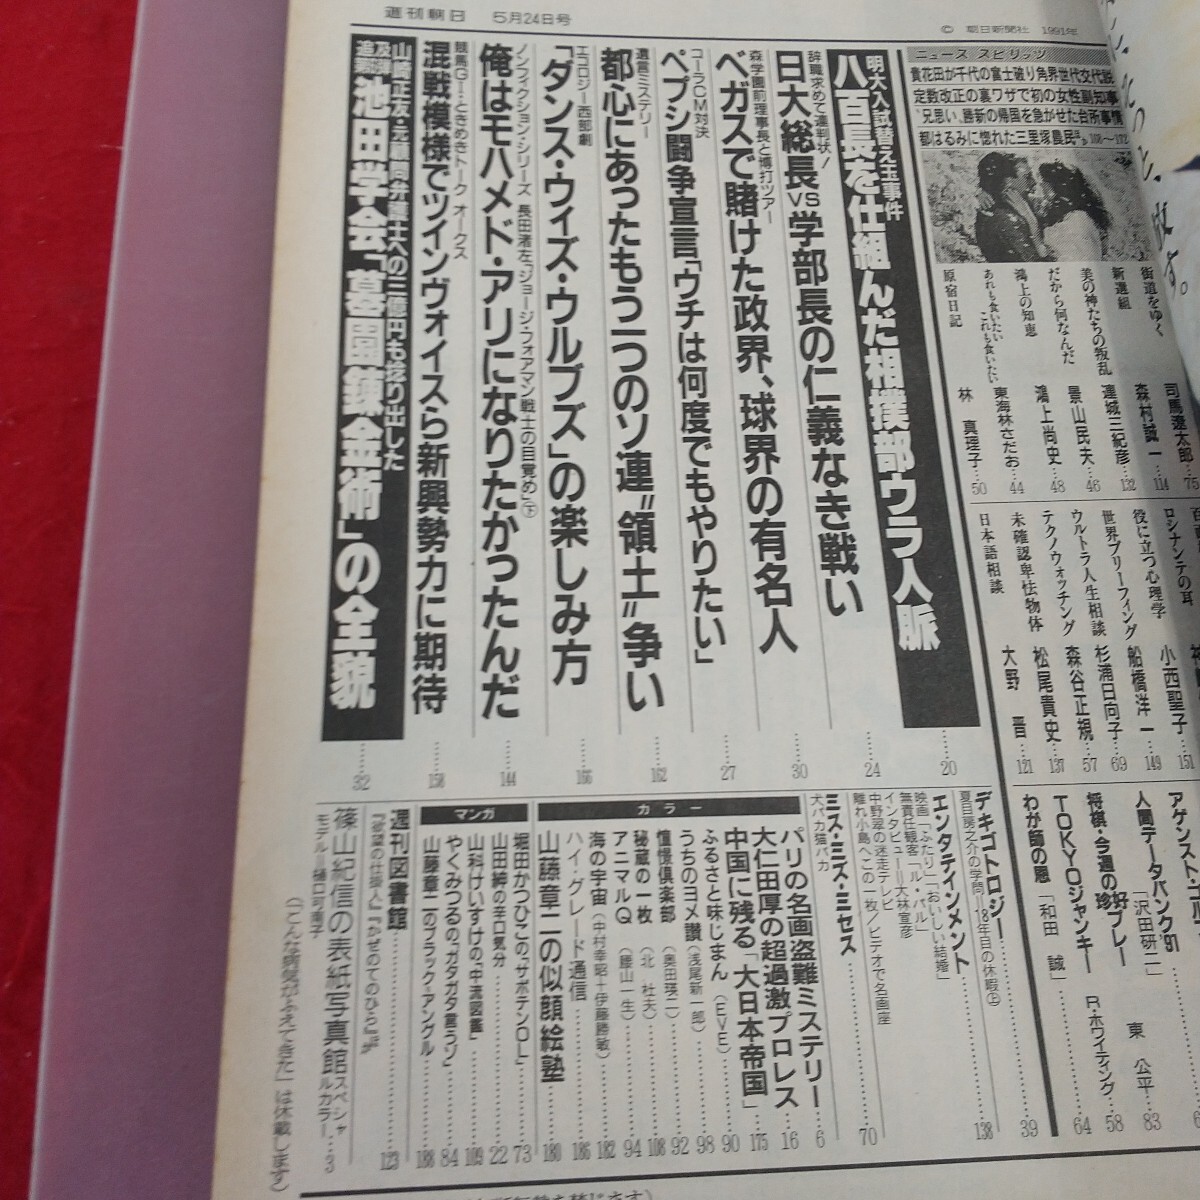 週刊朝日　5月24日号
© 朝日新聞社 1991年
ニュース スピリッツ
貴花田が千代の富士破り角界世代交代説
定数改正の裏ワザで初の女性副知事
"兄思い"勝新の帰国を急がせた台所事情
都はるみに惚れた三里塚農民 p108～172
明大入試替え玉事件
八百長を仕組んだ相撲部ウラ人脈……20
辞職求めて連判状！
日大総長VS学部長の仁義なき戦い……24
森学園前理事長と博打ツアー
ベガスで賭けた政界、球界の有名人……30
コーラCM対決
ペプシ闘争宣言「ウチは何度でもやりたい」……27
遺言ミステリー
都心にあったもう一つのソ連"領土"争い……162
エコロジー西部劇
「ダンス・ウィズ・ウルブズ」の楽しみ方……166
ノンフィクション・シリーズ 長田渚左「ジョージ・フォアマン戦士の目覚め」下
俺はモハメド・アリになりたかったんだ……144
競馬GⅠ・ときめきトーク オークス
混戦模様でツインヴォイスら新興勢力に期待……158
山崎正友・元顧問弁護士への三億円も捻り出した
池田学会「墓園錬金術」の全貌……32
街道をゆく　司馬遼太郎…75
新選組　森村誠一…114
美の神たちの叛乱　連城三紀彦…132
だから何なんだ　景山民夫…46
鴻上の知恵　鴻上尚史…48
あれも食いたいこれも食いたい　東海林さだお…44
原宿日記　林 真理子…50
ロシナンテの耳　小西聖子…151
役に立つ心理学　船橋洋一…149
世界ブリーフィング　杉浦日向子…69
ウルトラ人生相談　森谷正規…57
テクノウォッチング　松尾貴史…137
未確認卑怯物体　大野 晋…121
日本語相談
人間データバンク'91「沢田研二」　東 公平…83
将棋・今週の好プレー珍　R・ホワイティング…58
TOKYOジャンキー……64
わが師の恩「和田 誠」……39
デキゴトロジー……138
夏目房之介の学問＝18年目の休暇上
エンタテインメント
映画「ふたり」「おいしい結婚」
無責任観客「ル・バル」
インタビュー＝大林宣彦
中野翠の迷走テレビ
離れ小島へこの一枚／ビデオで名画座
ミス・ミズ・ミセス……70
犬バカ猫バカ
カラー
パリの名画盗難ミステリー……6
大仁田厚の超過激プロレス……16
中国に残る「大日本帝国」……175
ふるさと味じまん（EVE）……90
うちのヨメ讃（浅尾新一郎）……98
憧憬倶楽部（奥田瑛二）……92
秘蔵の一枚（北 杜夫）……108
アニマルQ（腰山一生）……94
海の宇宙（中村幸昭＋伊藤勝敏）……182
ハイ・グレード通信……186
山藤章二の似顔絵塾……180
マンガ
堀田かつひこの「サボテンOL」……73
山田紳の辛口気分……22
山科けいすけの「中流図鑑」……109
やくみつるの「ガタガタ言うゾ」……84
山藤章二のブラック＝アングル……188
週刊図書館……123
『欲望の仕掛人』『かぜのてのひら』ほか
篠山紀信の表紙写真館スペシャルカラー…3
モデル＝樋口可南子
（「こんな病気がふえてきた」は休載します）